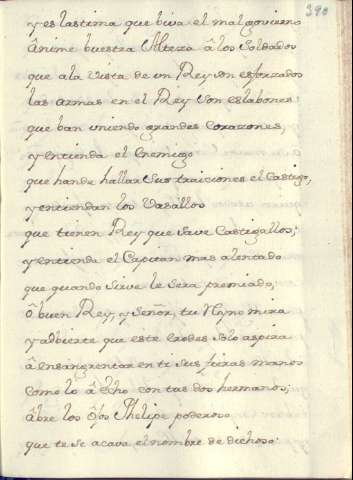 390
y es lastima que biva el mal govierno
ânime buestra Alteza â los Soldados
que a la vista de un Rey son esforzados
las armas en el Rey son eslabones
que ban uniendo grandes corazones,
y entienda el Enemigo
que han de hallar sus traiciones el Castigo,
y entiendan los Vasallos
que tienen Rey que save Castigallos;
y entienda el Capitan mas alentado
que quando sirve le sera premiado;
ô buen Rey, y Señor, tu Reyno mira
y advierte que este Erodes solo aspira
â ensangrentar en ti sus fieras manos
como lo â echo con tus dos hermanos;
âbre los ôjos Phelipe poderoso
que te se acava el nombre de dichoso: